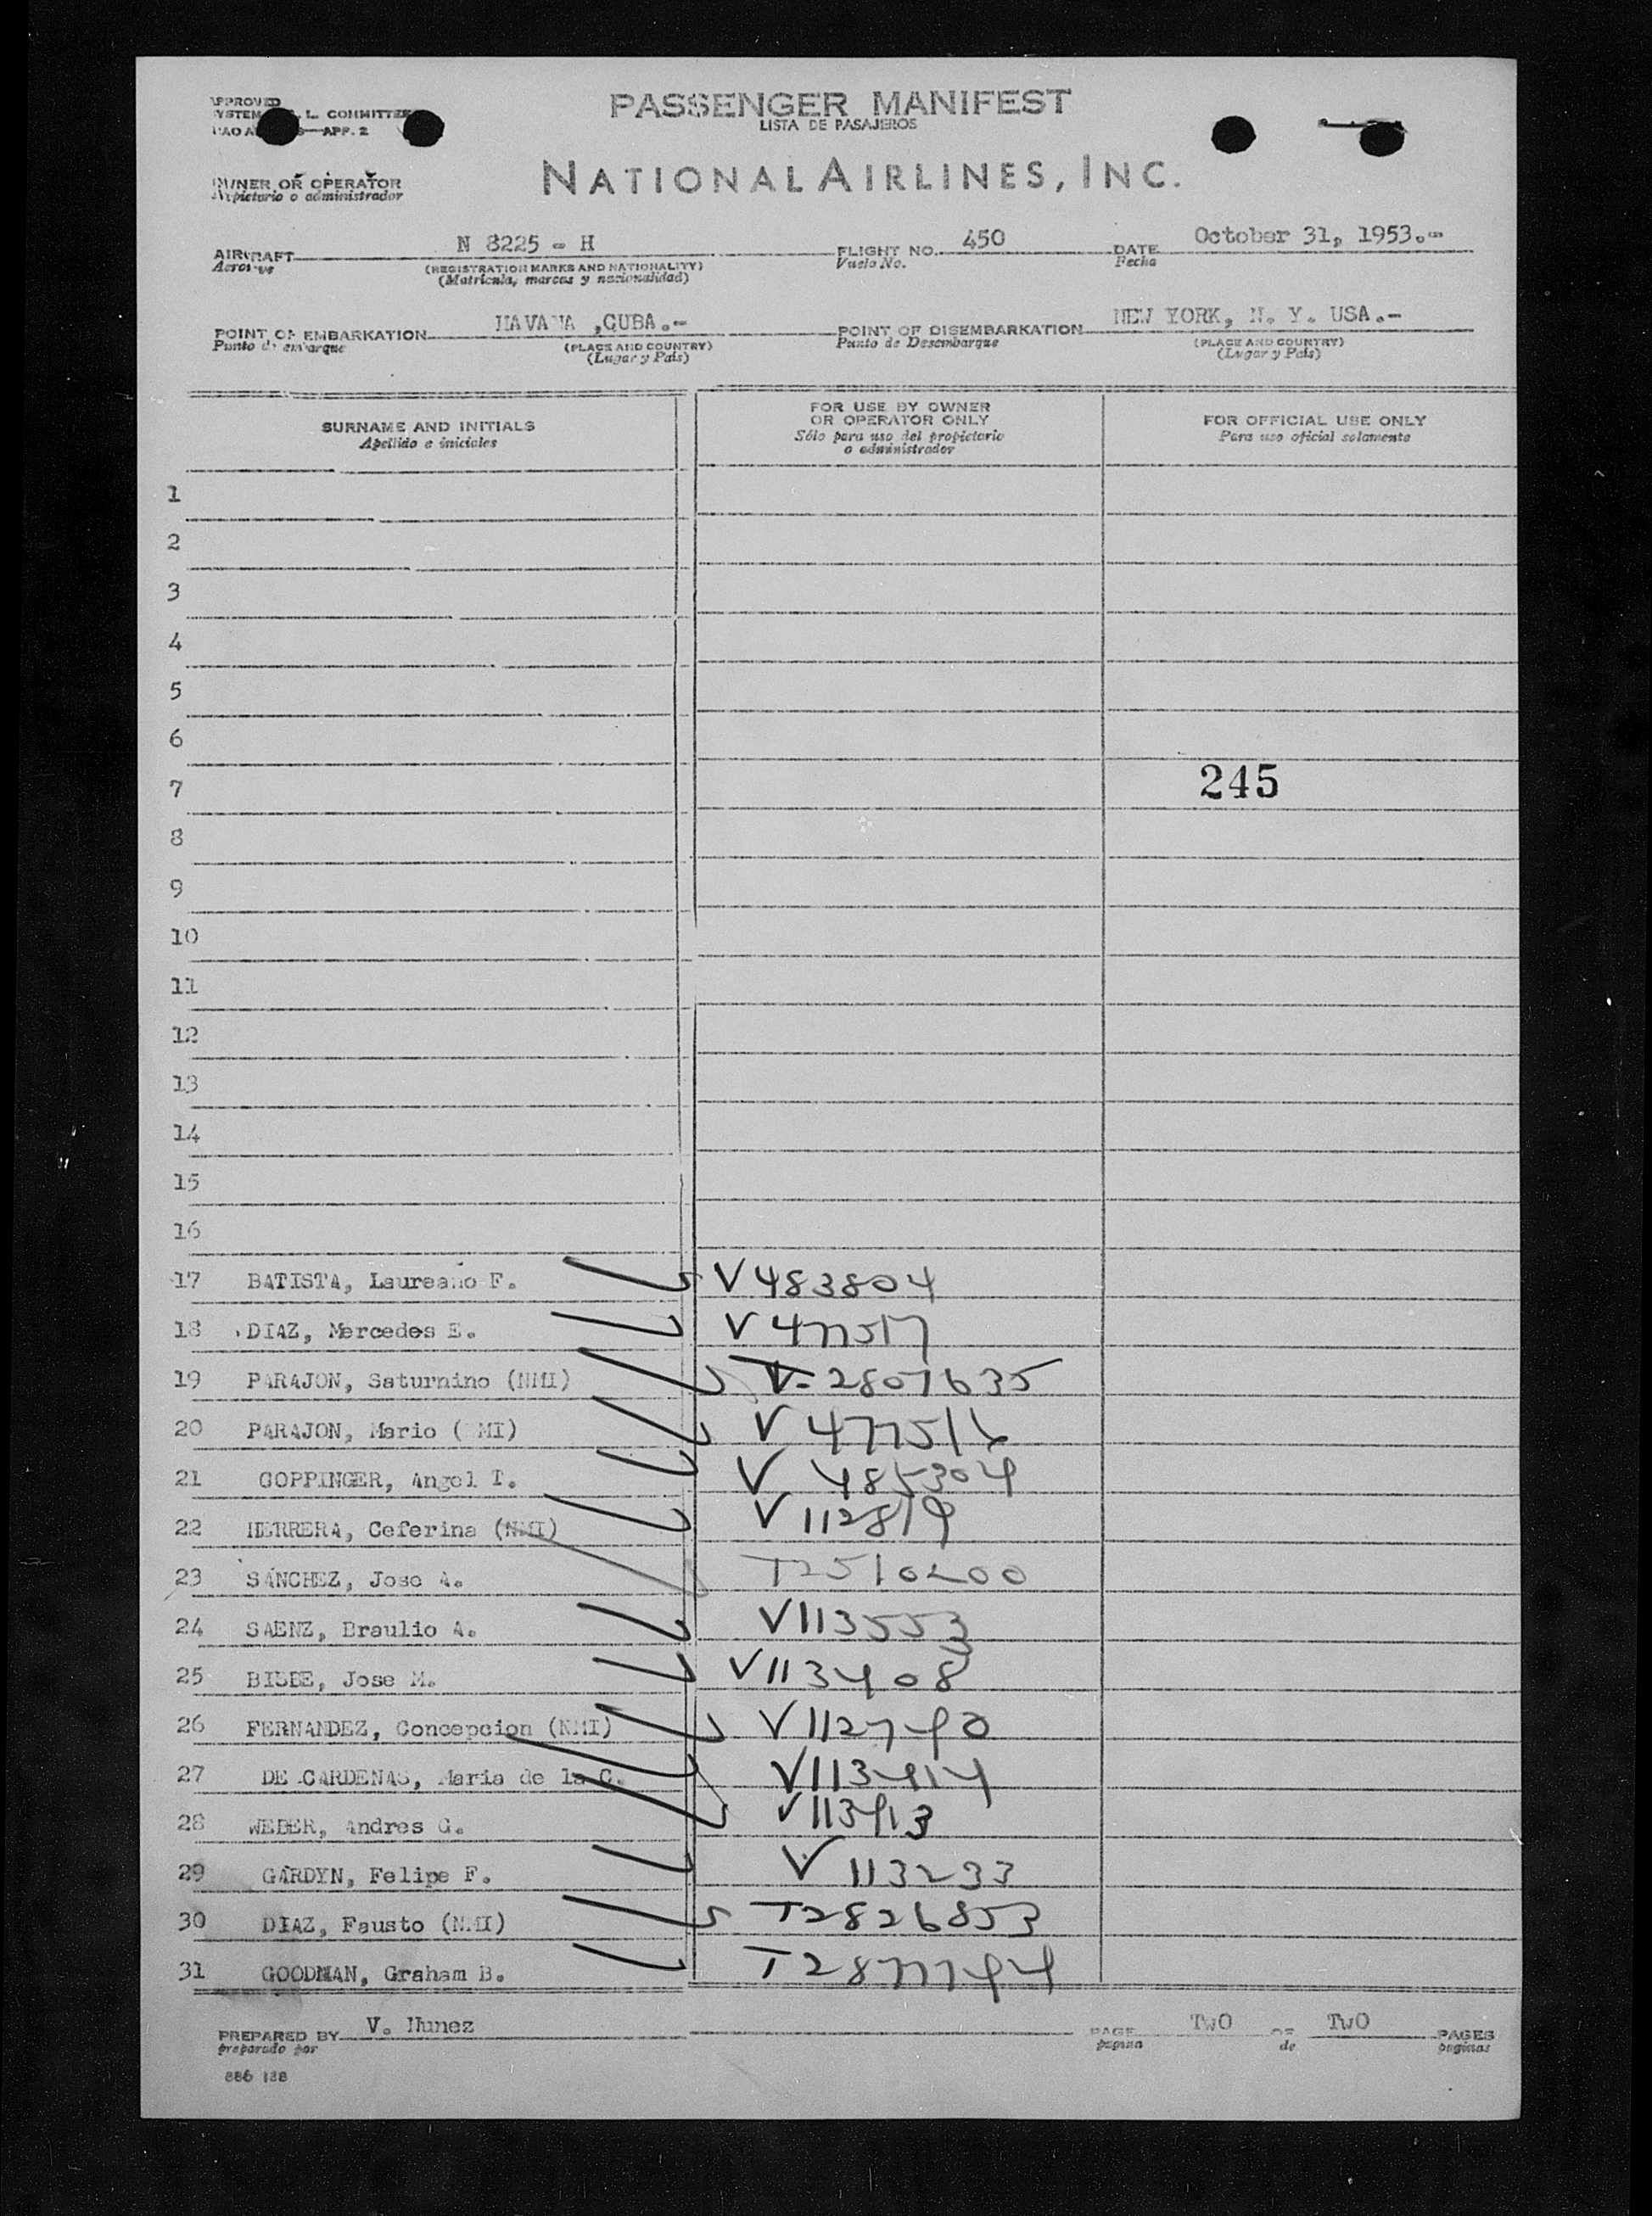 APPROVED
L. COMMITTEE
APP. 2
PASSENGER MANIFEST
LISTA DE PASAJEROS
NATIONAL AIRLINES, INC.
OWNER OR OPERATOR
o administrador
AIRCRAFT N 8225 - H FLIGHT NO. 450 DATE October 31, 1953.-
(REGISTRATION MARKS AND NATIONALITY) Vuelo No. Fecha
(Matricula, marcas y nacionalidad)
POINT OF EMBARKATION HAVANA ,CUBA.- POINT OF DISEMBARKATION NEW YORK, N. Y. USA.-
Punto de embarque (PLACE AND COUNTRY) Punto de Desembarque (PLACE AND COUNTRY)
(Lugar y País) (Lugar y País)
SURNAME AND INITIALS
Apellido e iniciales
FOR USE BY OWNER
OR OPERATOR ONLY
Sólo para uso del propietario
o administrador
FOR OFFICIAL USE ONLY
Para uso oficial solamente
1
2
3
4
5
6
7 245
8
9
10
11
12
13
14
15
16
17 BATISTA, Laureano F. V 483804
18 DIAZ, Mercedes E. V 477517
19 PARAJON, Saturnino (NMI) V-2807635
20 PARAJON, Mario ( MI) V 477516
21 GOPPINGER, Angel T. V 485304
22 HERRERA, Ceferina (NMI) V 112819
23 SÁNCHEZ, Jose A. T2510200
24 SAENZ, Braulio A. V113553
25 BISBE, Jose M. V113408
26 FERNANDEZ, Concepcion (NMI) V112740
27 DE CARDENAS, Maria de la C. V113414
28 WEBER, Andres G. V113413
29 GARDYN, Felipe F. V 113233
30 DIAZ, Fausto (NMI) T2826853
31 GOODMAN, Graham B. T2877744
PREPARED BY V. Nunez PAGE TwO OF TwO PAGES
preparado por pagina de paginas
886 188